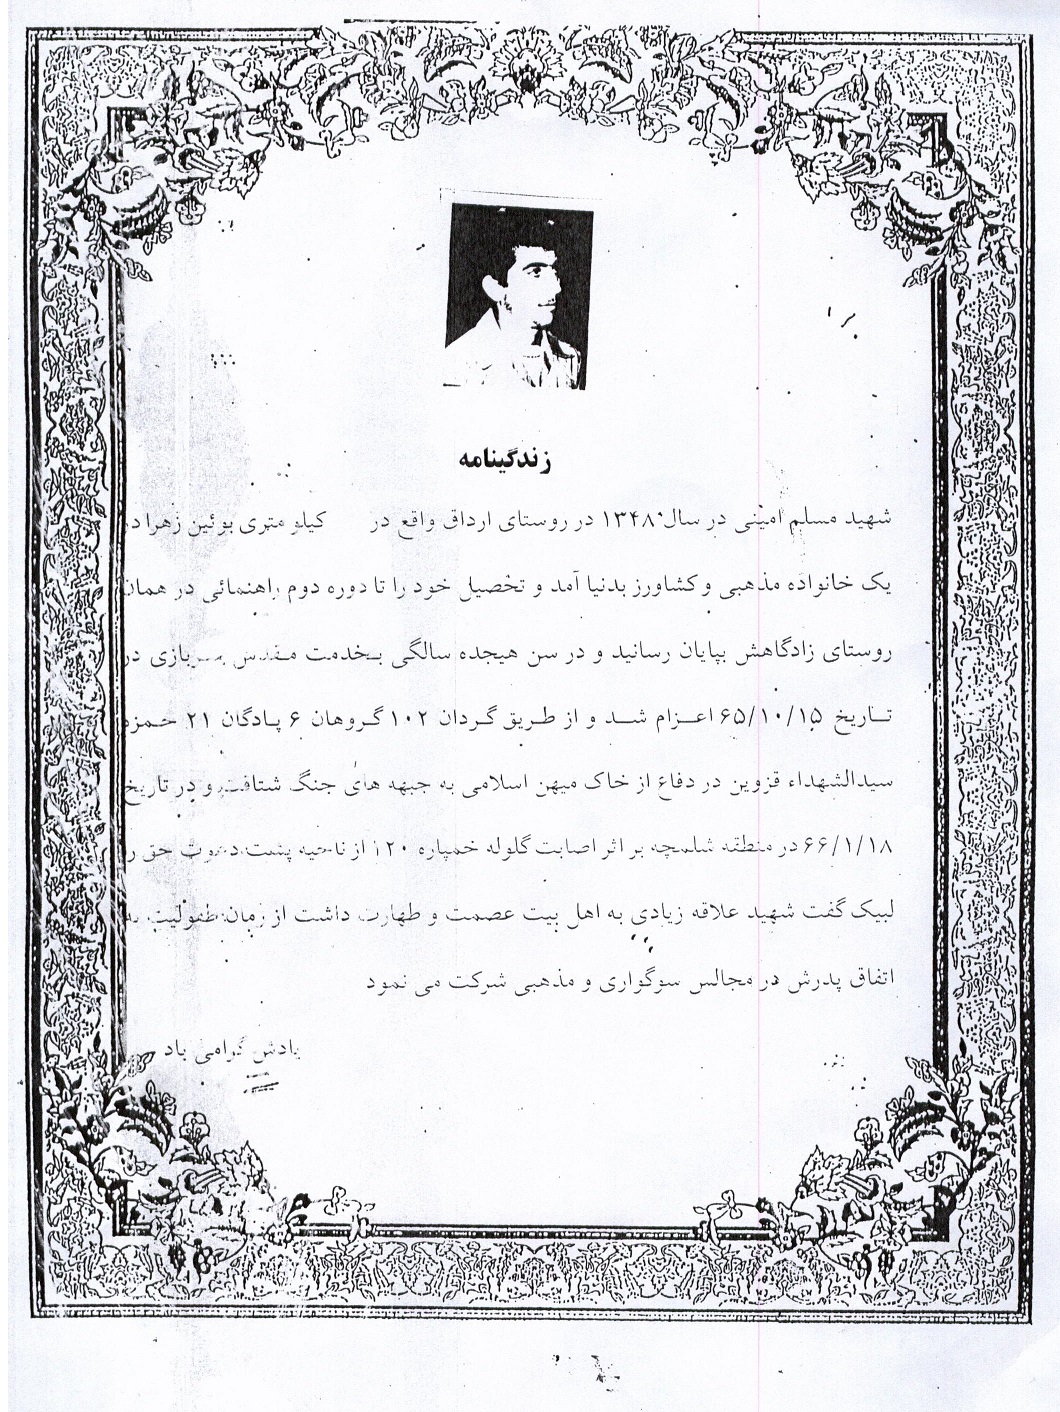 زندگینامه
شهید مسلم امینی در سال ۱۳۴۸ در روستای ارداق واقع در کیلو متری بوئین زهرا در
یک خانواده مذهبی و کشاورز بدنیا آمد و تحصیل خود را تا دوره دوم راهنمائی در همان
روستای زادگاهش بپایان رسانید و در سن هیجده سالگی بخدمت مقدس سربازی در
تاریخ ۶۵/۱۰/۱۵ اعزام شد و از طریق گردان ۱۰۲ گروهان ۶ پادگان ۲۱ حمزه
سیدالشهداء قزوین در دفاع از خاک میهن اسلامی به جبهه های جنگ شتافت و در تاریخ
۶۶/۱/۱۸ در منطقه شلمچه بر اثر اصابت گلوله خمپاره از ناحیه پشت دعوت حق را
لبیک گفت شهید علاقه زیادی به اهل بیت عصمت و طهارت داشت از زمان طفولیت به
اتفاق پدرش در مجالس سوگواری و مذهبی شرکت می نمود
یادش گرامی باد